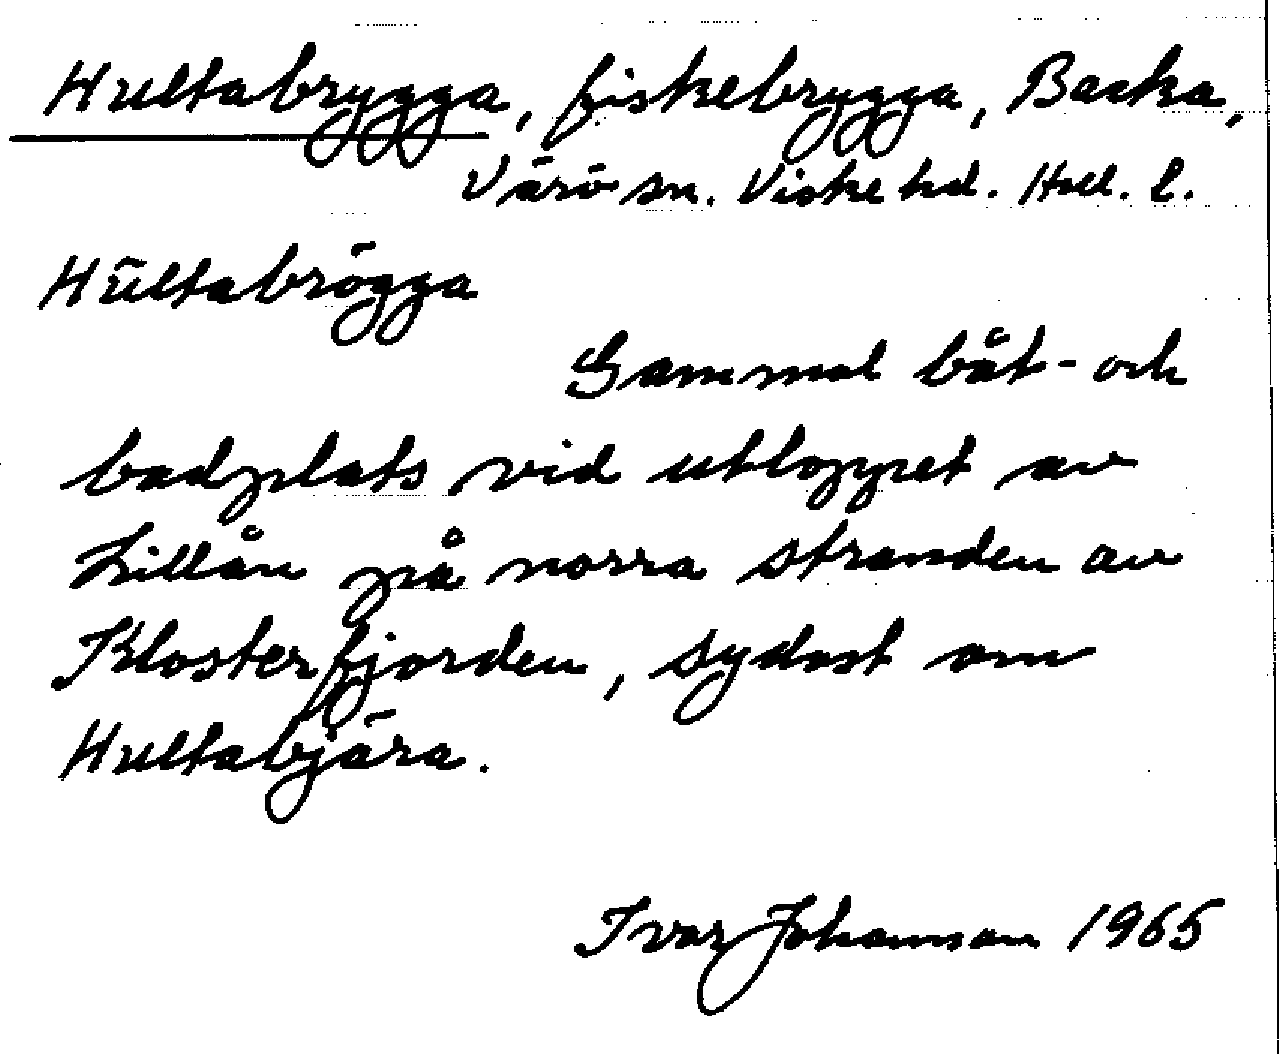 Hultabrygga, fiskebrygga, Backa,
Värö sn. Viske hd. Hall. l.
Hūltabrögga
Gammal båt- och
badplats vid utloppet av
Lillån på norra stranden av
Klosterfjorden, sydost om
Hultabjära.
Ivar Johansson 1965